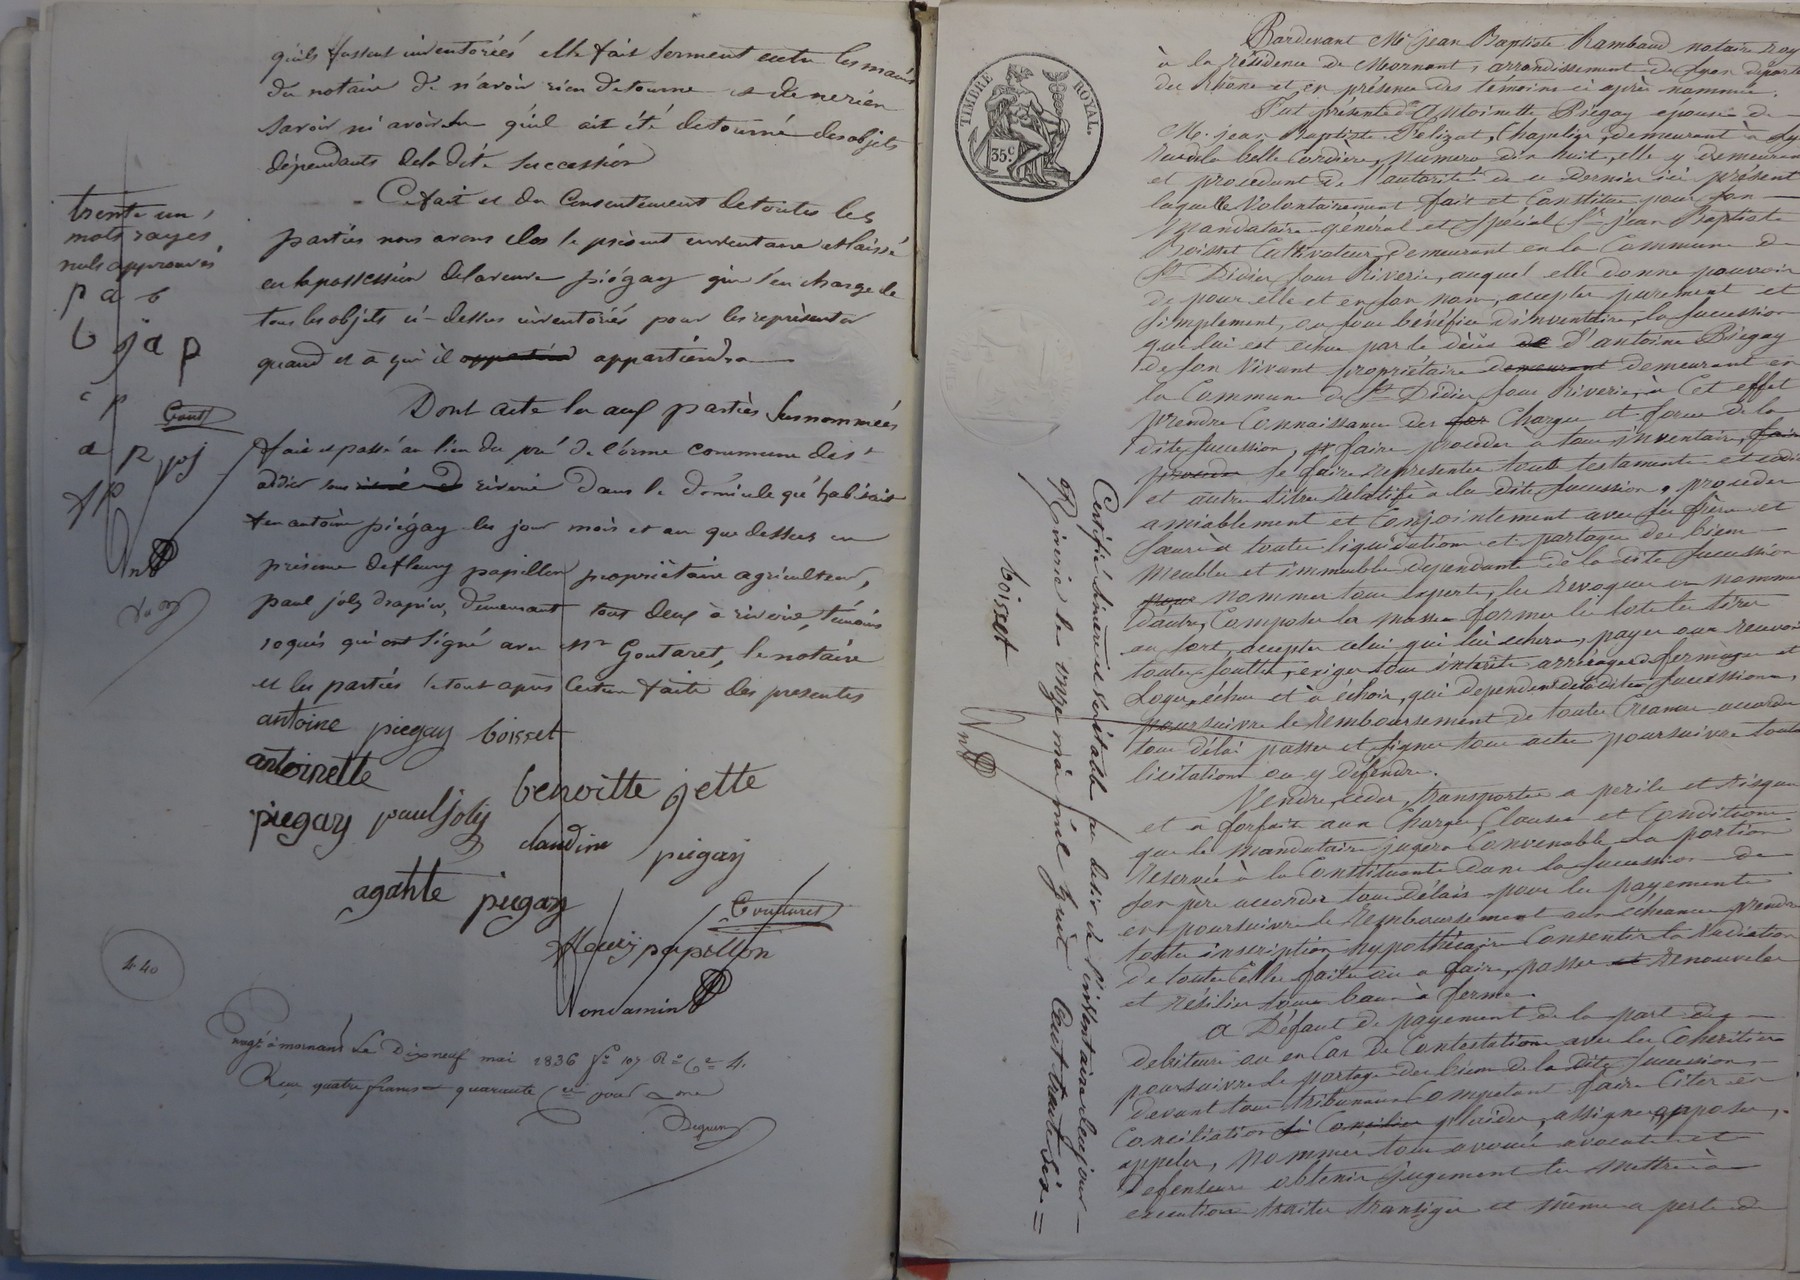 qu'ils fussent inventoriés elle fait serment entre les mains
du notaire de n'avoir rien detourné et de ne rien
savoir ni avoir su qu'il ait été detourné des objets
dépendants de la dite succession
Ce fait et du consentement de toutes les
parties nous avons clos le présent inventaire et laissé
en la possession de la veuve piégay qui s'en charge de
tous les objets ci-dessus inventoriés pour les représenter
quand et à qui il appartiendra
Dont acte lu aux parties susnommées
fait et passé au lieu du pré de l'orme commune de st
didier sous riverie dans le domicile qu'habitait
feu antoine piégay les jour mois et an que dessus en
présence de fleury papillon propriétaire agriculteur,
paul joly drapier, demeurant tous deux à riverie, témoins
requis qui ont signé avec Mr Goutaret, le notaire
et les parties le tout après lecture faite des presentes
antoine piegay boisset
antoinette
piegay paul joly benoitte jette
claudine piegay
agathe piegay
fleury papillon
Condamin
trente un
mots rayés
nuls approuvés
p a b
b j a p
c p
a p pj
fp
440
Enregé à mornant Le Dix neuf mai 1836 fo 107 Ro Ce 4.
Reçu quatre francs quarante cmes pour
Pardevant Me Jean Baptiste Rambaud notaire roy
à la résidence de Mornant, arrondissement de Lyon départe
du Rhône et en présence des témoins ci après nommés.
Fut présente de Antoinette Piégay épouse de
Mr jean Baptiste Pelizat, Chapelier, demeurant à Ly
rue de la belle Cordière, numero dix huit, elle y demeurant
et procedant de l'autorité de ce dernier ici présent
laquelle volontairement fait et Constitue pour son
mandataire général et spécial Sr jean Baptiste
Boisset Cultivateur, demeurant en la Commune de
St Didier sous Riverie, auquel elle donne pouvoir
de pour elle et en son nom, accepter purement et
simplement, ou sous bénéfice d'inventaire, la succession
qui lui est echue par le décès de d'antoine Piégay
de son vivant propriétaire demeurant demeurant en
la Commune de St Didier sous Riverie, à cet effet
prendre Connaissance des Charges et forces de la
dite succession, faire proceder à tous inventaires,
se faire représenter tous testaments et codi
et autres titres relatifs à la dite succession, proceder
amiablement et Conjointement avec ses frères et
sœurs à toutes liquidations et partages des biens
meubles et immeubles dependants de la dite succession
nommer tous experts, les revoquer en nommer
d'autres, Composer la masse former les lots les tirer
au sort, accepter celui qui lui echera, payer ou recevoir
toutes soultes, exiger tous intérêts arrérages de fermages et
Loyers echus et à échoir, qui dependent de la dite succession,
poursuivre le remboursement de toutes Creances accorder
tous délais passer et signer tous actes poursuivre toutes
licitations ou y defendre.
Vendre, ceder, transporter a perils et risques
et à forfait aux Charges, Clauses et Conditions
que le mandataire jugera Convenable la portion
réservée à la Constituante dans la succession de
son père accorder tous délais pour les payements
en poursuivre le remboursement aux échéances prendre
toutes inscriptions hypothécaires Consentir la Radiation
de toutes Celles faites ou a faire, passer renouveler
et résilier tous baux à ferme.
A Défaut de payement de la part des
debiteurs ou en Cas de Contestation avec les Cohéritiers
poursuivre le partage des biens de la dite succession
devant tous tribunaux Compétants faire Citer en
Conciliation plaider, assigner opposer,
appeler, nommer tous avoués avocats et
defenseurs obtenir jugement les mettre à
execution traiter transiger et même a perte de
TIMBRE ROYAL.
35c
Certifié sincère et véritable au désir de l'inventaire de ce jour
Riverie le onze mai mil huit Cent trente six
boisset